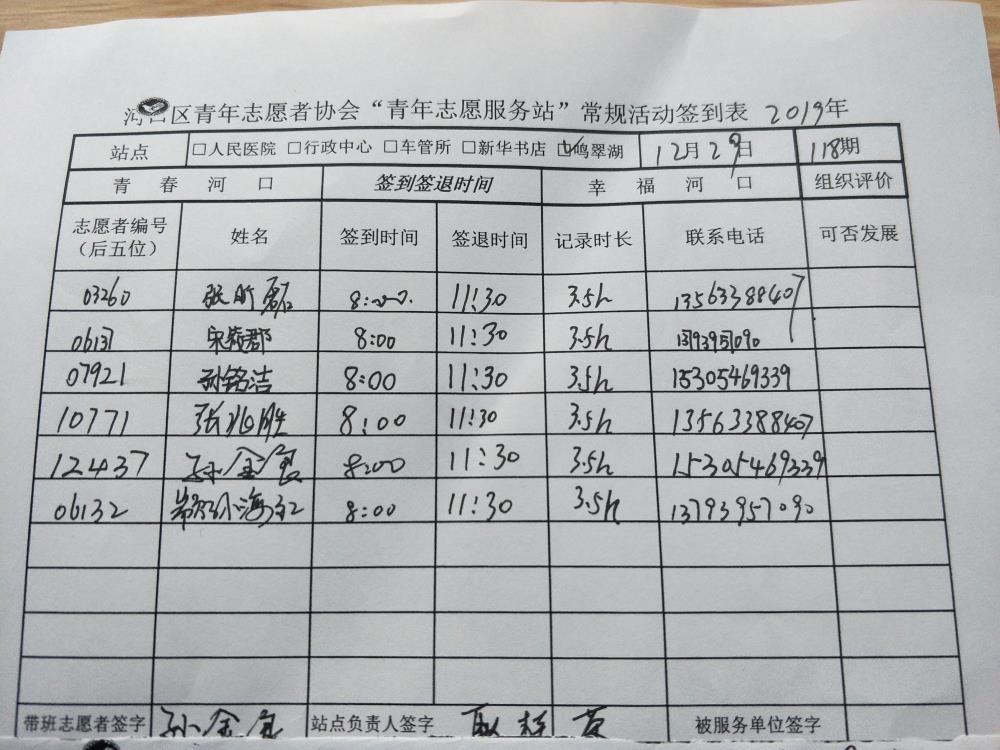 河口区青年志愿者协会“青年志愿服务站”常规活动签到表 2019年
站点 □人民医院 □行政中心 □车管所 □新华书店 ☑鸣翠湖 12月29日 118期
青春河口 签到签退时间 幸福河口 组织评价
志愿者编号（后五位） 姓名 签到时间 签退时间 记录时长 联系电话 可否发展
03260 张昕磊 8:00 11:30 3.5h 13563388407
06131 8:00 11:30 3.5h 13793957090
07921 孙铭洁 8:00 11:30 3.5h 15305469339
10771 张兆胜 8:00 11:30 3.5h 13563388407
12437 孙金良 8:00 11:30 3.5h 15305469339
06132 8:00 11:30 3.5h 13793957090
带班志愿者签字 孙金良 站点负责人签字 被服务单位签字